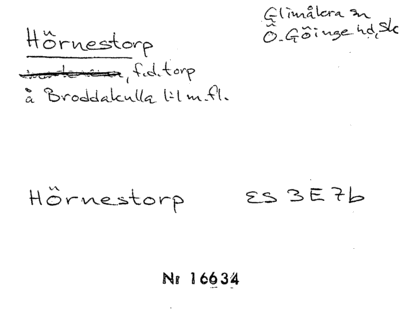 Hörnestorp
Glimåkra sn
Ö. Göinge hd, Sk
, f.d. torp
å Broddakulla 1:1 m.fl.
Hörnestorp ES 3E7b
Nr 16634